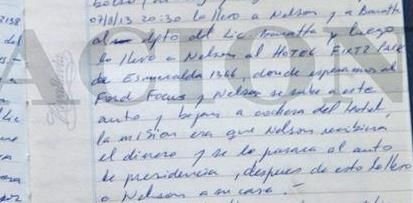 07/8/13 20:30 lo llevo a Nelson y a Baratta
al dpto del Lic Baratta y luego
lo llevo a Nelson al HOTEL FEIR'S PARK
de Esmeralda 1366, donde esperamos al
Ford Focus y Nelson se sube a este
auto y bajan a cochera del hotel,
la mision era que Nelson recibiera
el dinero y se lo pasara al auto
de presidencia, despues de esto lo llevo
a Nelson a su casa.-
ACION